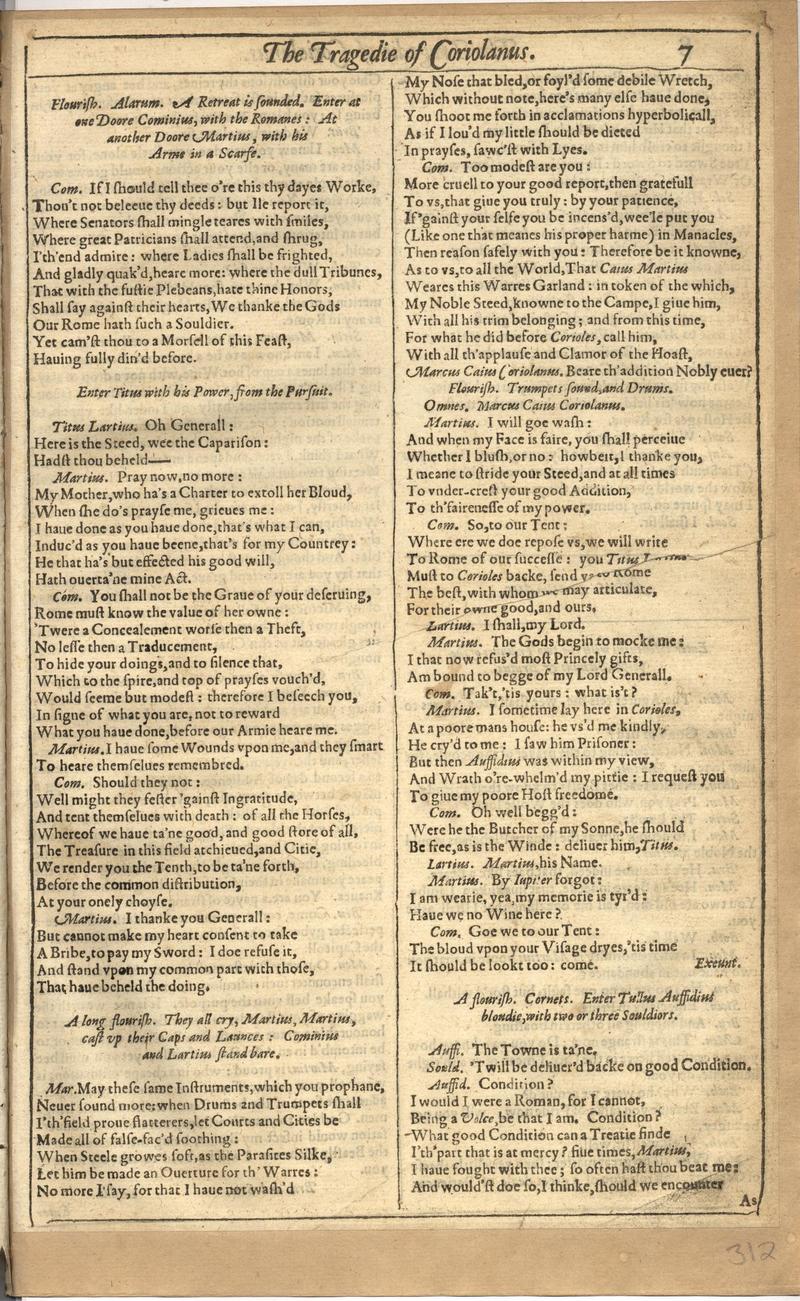 The Tragedie of Coriolanus. 7
Flouriſh. Alarum. A Retreat is ſounded. Enter at
one Doore Cominius, with the Romanes: At
another Doore Martius, with his
Arme in a Scarfe.
Com. If I ſhould tell thee o're this thy dayes Worke,
Thou't not beleeue thy deeds: but Ile report it,
Where Senators ſhall mingle teares with ſmiles,
Where great Patricians ſhall attend, and ſhrug,
I'th'end admire: where Ladies ſhall be frighted,
And gladly quak'd, heare more: where the dull Tribunes,
That with the fuſtie Plebeans, hate thine Honors,
Shall ſay againſt their hearts, We thanke the Gods
Our Rome hath ſuch a Souldier.
Yet cam'ſt thou to a Morſell of this Feaſt,
Hauing fully din'd before.
Enter Titus with his Power, from the Purſuit.
Titus Lartius. Oh Generall:
Here is the Steed, wee the Capariſon:
Hadſt thou beheld——
Martius. Pray now, no more:
My Mother, who ha's a Charter to extoll her Bloud,
When ſhe do's prayſe me, grieues me:
I haue done as you haue done, that's what I can,
Induc'd as you haue beene, that's for my Countrey:
He that ha's but effected his good will,
Hath ouerta'ne mine Act.
Com. You ſhall not be the Graue of your deſeruing,
Rome muſt know the value of her owne:
'Twere a Concealement worſe then a Theft,
No leſſe then a Traducement,
To hide your doings, and to ſilence that,
Which to the ſpire, and top of prayſes vouch'd,
Would ſeeme but modeſt: therefore I beſeech you,
In ſigne of what you are, not to reward
What you haue done, before our Armie heare me.
Martius. I haue ſome Wounds vpon me, and they ſmart
To heare themſelues remembred.
Com. Should they not:
Well might they feſter 'gainſt Ingratitude,
And tent themſelues with death: of all the Horſes,
Whereof we haue ta'ne good, and good ſtore of all,
The Treaſure in this field atchieued, and Citie,
We render you the Tenth, to be ta'ne forth,
Before the common diſtribution,
At your onely choyſe.
Martius. I thanke you Generall:
But cannot make my heart conſent to take
A Bribe, to pay my Sword: I doe refuſe it,
And ſtand vpon my common part with thoſe,
That haue beheld the doing.
A long flouriſh. They all cry, Martius, Martius,
caſt vp their Caps and Launces: Cominius
and Lartius ſtand bare.
Mar. May theſe ſame Inſtruments, which you prophane,
Neuer ſound more: when Drums and Trumpets ſhall
I'th'field proue flatterers, let Courts and Cities be
Made all of falſe-fac'd ſoothing:
When Steele growes ſoft, as the Paraſites Silke,
Let him be made an Ouerture for th' Warres:
No more I ſay, for that I haue not waſh'd
My Noſe that bled, or foyl'd ſome debile Wretch,
Which without note, here's many elſe haue done,
You ſhoot me forth in acclamations hyperbolicall,
As if I lou'd my little ſhould be dieted
In prayſes, ſawc'ſt with Lyes.
Com. Too modeſt are you:
More cruell to your good report, then gratefull
To vs, that giue you truly: by your patience,
If 'gainſt your ſelfe you be incens'd, wee'le put you
(Like one that meanes his proper harme) in Manacles,
Then reaſon ſafely with you: Therefore be it knowne,
As to vs, to all the World, That Caius Martius
Weares this Warres Garland: in token of the which,
My Noble Steed, knowne to the Campe, I giue him,
With all his trim belonging; and from this time,
For what he did before Corioles, call him,
With all th'applauſe and Clamor of the Hoaſt,
Marcus Caius Coriolanus. Beare th'addition Nobly euer?
Flouriſh. Trumpets ſound, and Drums.
Omnes. Marcus Caius Coriolanus.
Martius. I will goe waſh:
And when my Face is faire, you ſhall perceiue
Whether I bluſh, or no: howbeit, I thanke you,
I meane to ſtride your Steed, and at all times
To vnder-creſt your good Addition,
To th'faireneſſe of my power.
Com. So, to our Tent:
Where ere we doe repoſe vs, we will write
To Rome of our ſucceſſe: you Titus
Muſt to Corioles backe, ſend Rome
The beſt, with whom we may articulate,
For their owne good, and ours.
Lartius. I ſhall, my Lord.
Martius. The Gods begin to mocke me:
I that now refus'd moſt Princely gifts,
Am bound to begge of my Lord Generall.
Com. Tak't, 'tis yours: what is't?
Martius. I ſometime lay here in Corioles,
At a poore mans houſe: he vs'd me kindly,
He cry'd to me: I ſaw him Priſoner:
But then Auffidius was within my view,
And Wrath o're-whelm'd my pittie: I requeſt you
To giue my poore Hoſt freedome.
Com. Oh well begg'd:
Were he the Butcher of my Sonne, he ſhould
Be free, as is the Winde: deliuer him, Titus.
Lartius. Martius, his Name.
Martius. By Iupiter forgot:
I am wearie, yea, my memorie is tyr'd:
Haue we no Wine here?
Com. Goe we to our Tent:
The bloud vpon your Viſage dryes, 'tis time
It ſhould be lookt too: come. Exeunt.
A flouriſh. Cornets. Enter Tullus Auffidius
bloudie, with two or three Souldiors.
Auffi. The Towne is ta'ne.
Sould. 'Twill be deliuer'd backe on good Condition.
Auffid. Condition?
I would I were a Roman, for I cannot,
Being a Volce, be that I am. Condition?
What good Condition can a Treatie finde
I'th'part that is at mercy? fiue times, Martius,
I haue fought with thee; ſo often haſt thou beat me:
And would'ſt doe ſo, I thinke, ſhould we encounter
As
312